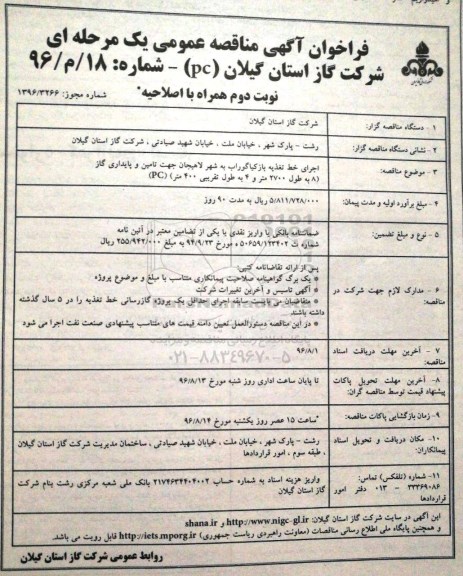 فراخوان آگهی مناقصه عمومی یک مرحله ای
شرکت گاز استان گیلان (pc) - شماره: ۱۸/م/۹۶
نوبت دوم همراه با اصلاحیه*
شماره مجوز: ۱۳۹۶/۳۲۶۶
۱ - دستگاه مناقصه گزار:
شرکت گاز استان گیلان
۲ - نشانی دستگاه مناقصه گزار:
رشت - پارک شهر ، خیابان ملت ، خیابان شهید صیادتی ، شرکت گاز استان گیلان
۳ - موضوع مناقصه:
اجرای خط تغذیه بازکیاگوراب به شهر لاهیجان جهت تامین و پایداری گاز
(۸ به طول ۲۷۰۰ متر و ۴ به طول تقریبی ۴۰۰ متر) (PC)
۴ - مبلغ برآورد اولیه و مدت پیمان:
۵/۸۱۱/۷۲۸/۰۰۰ ریال به مدت ۹۰ روز
۵ - نوع و مبلغ تضمین:
ضمانتنامه بانکی یا واریز نقدی یا یکی از تضامین معتبر در آئین نامه
شماره ت ۵۰۶۵۹/۱۲۳۴۰۲ مورخ ۹۴/۹/۲۳ به مبلغ ۲۵۵/۹۴۲/۰۰۰ ریال
۶ - مدارک لازم جهت شرکت در
مناقصه:
پس از ارائه تقاضانامه کتبی:
* یک برگ گواهینامه صلاحیت پیمانکاری متناسب با مبلغ و موضوع پروژه
* آگهی تاسیس و آخرین تغییرات شرکت
* متقاضیان می بایست سابقه اجرای حداقل یک پروژه گازرسانی خط تغذیه را در ۵ سال گذشته
داشته باشند
* در این مناقصه دستورالعمل تعیین دامنه قیمت های متناسب پیشنهادی صنعت نفت اجرا می شود
۷ - آخرین مهلت دریافت اسناد
مناقصه:
۹۶/۸/۱
۸ - آخرین مهلت تحویل پاکات
پیشنهاد قیمت توسط مناقصه گران:
تا پایان ساعت اداری روز شنبه مورخ ۹۶/۸/۱۳
۹- زمان بازگشایی پاکات مناقصه:
*ساعت ۱۵ عصر روز یکشنبه مورخ ۹۶/۸/۱۴
۱۰- مکان دریافت و تحویل اسناد
پیمانکاران:
رشت - پارک شهر ، خیابان ملت ، خیابان شهید صیادتی ، ساختمان مدیریت شرکت گاز استان گیلان
، طبقه سوم ، امور قراردادها
۱۱- شماره (تلفکس) تماس:
۳۳۳۶۹۰۸۶ - ۰۱۳ دفتر امور
قراردادها
واریز هزینه اسناد به شماره حساب ۲۱۷۴۶۳۴۴۰۴۰۰۲ بانک ملی شعبه مرکزی رشت بنام شرکت
گاز استان گیلان
این آگهی در سایت شرکت گاز استان گیلان: http://www.nigc-gl.ir و shana.ir
و همچنین پایگاه ملی اطلاع رسانی مناقصات (معاونت راهبردی ریاست جمهوری) http://iets.mporg.ir قابل رویت می باشد.
روابط عمومی شرکت گاز استان گیلان
۰۲۱-۸۸۳۴۹۶۷۰-۵